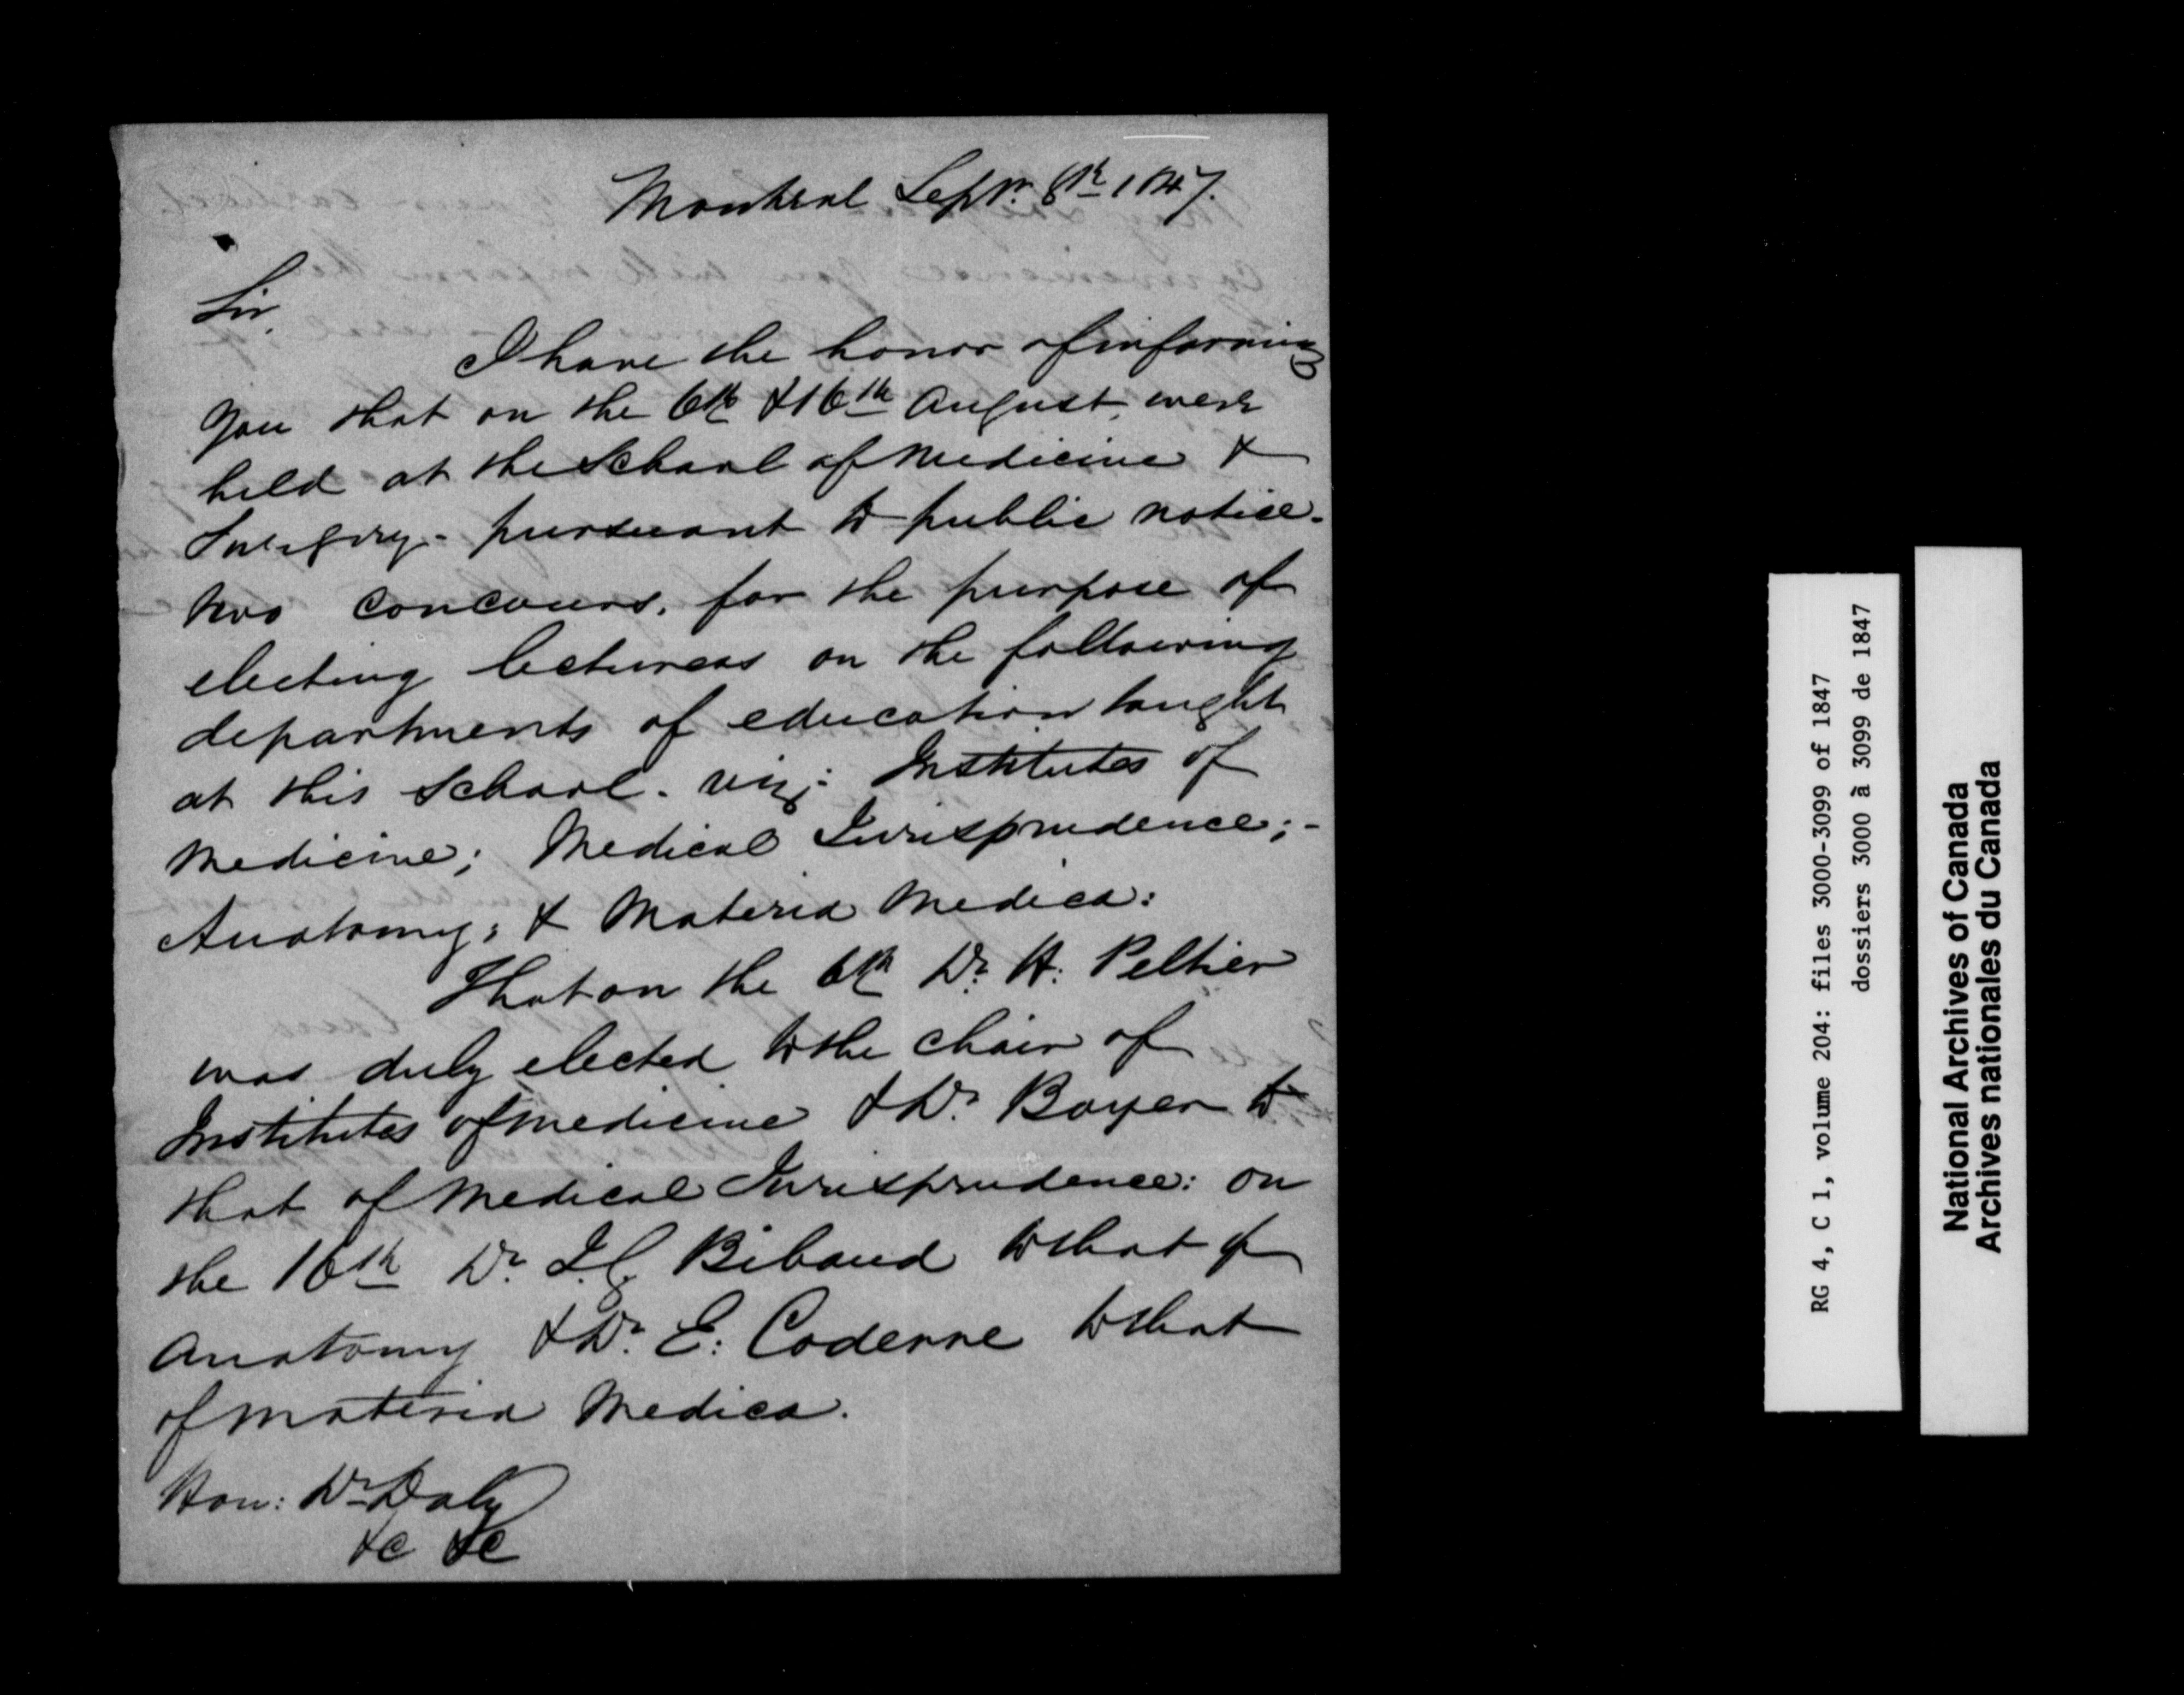 Montreal Septr. 8th 1847.
Sir,
I have the honor of informing
you that on the 6th & 16th August, were
held at the School of Medicine &
Surgery - pursuant to public notice -
two concours, for the purpose of
electing lecturers on the following
departments of education taught
at this School - viz: Institutes of
Medicine; Medical Jurisprudence; -
Anatomy; & Materia Medica:
That on the 6th Dr. H: Peltier
was duly elected to the chair of
Institutes of Medicine & Dr. Boyer to
that of Medical Jurisprudence: on
the 16th Dr. J.G. Bibaud to that of
Anatomy & Dr. E: Coderre to that
of Materia Medica.
Hon: Dr Daly
&c &c
RG 4, C 1, volume 204: files 3000-3099 of 1847
dossiers 3000 à 3099 de 1847
National Archives of Canada
Archives nationales du Canada